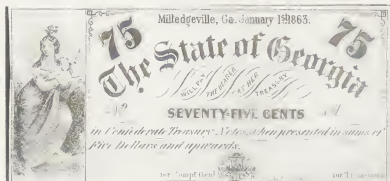 Milledgeville, Ga. January 1st 1863.
75 75
The State of Georgia
WILL PAY THE BEARER AT HER TREASURY
SEVENTY-FIVE CENTS
in Confederate Treasury Notes when presented in sums of
Five Dollars and upwards.
for Compt Genl for Treasurer